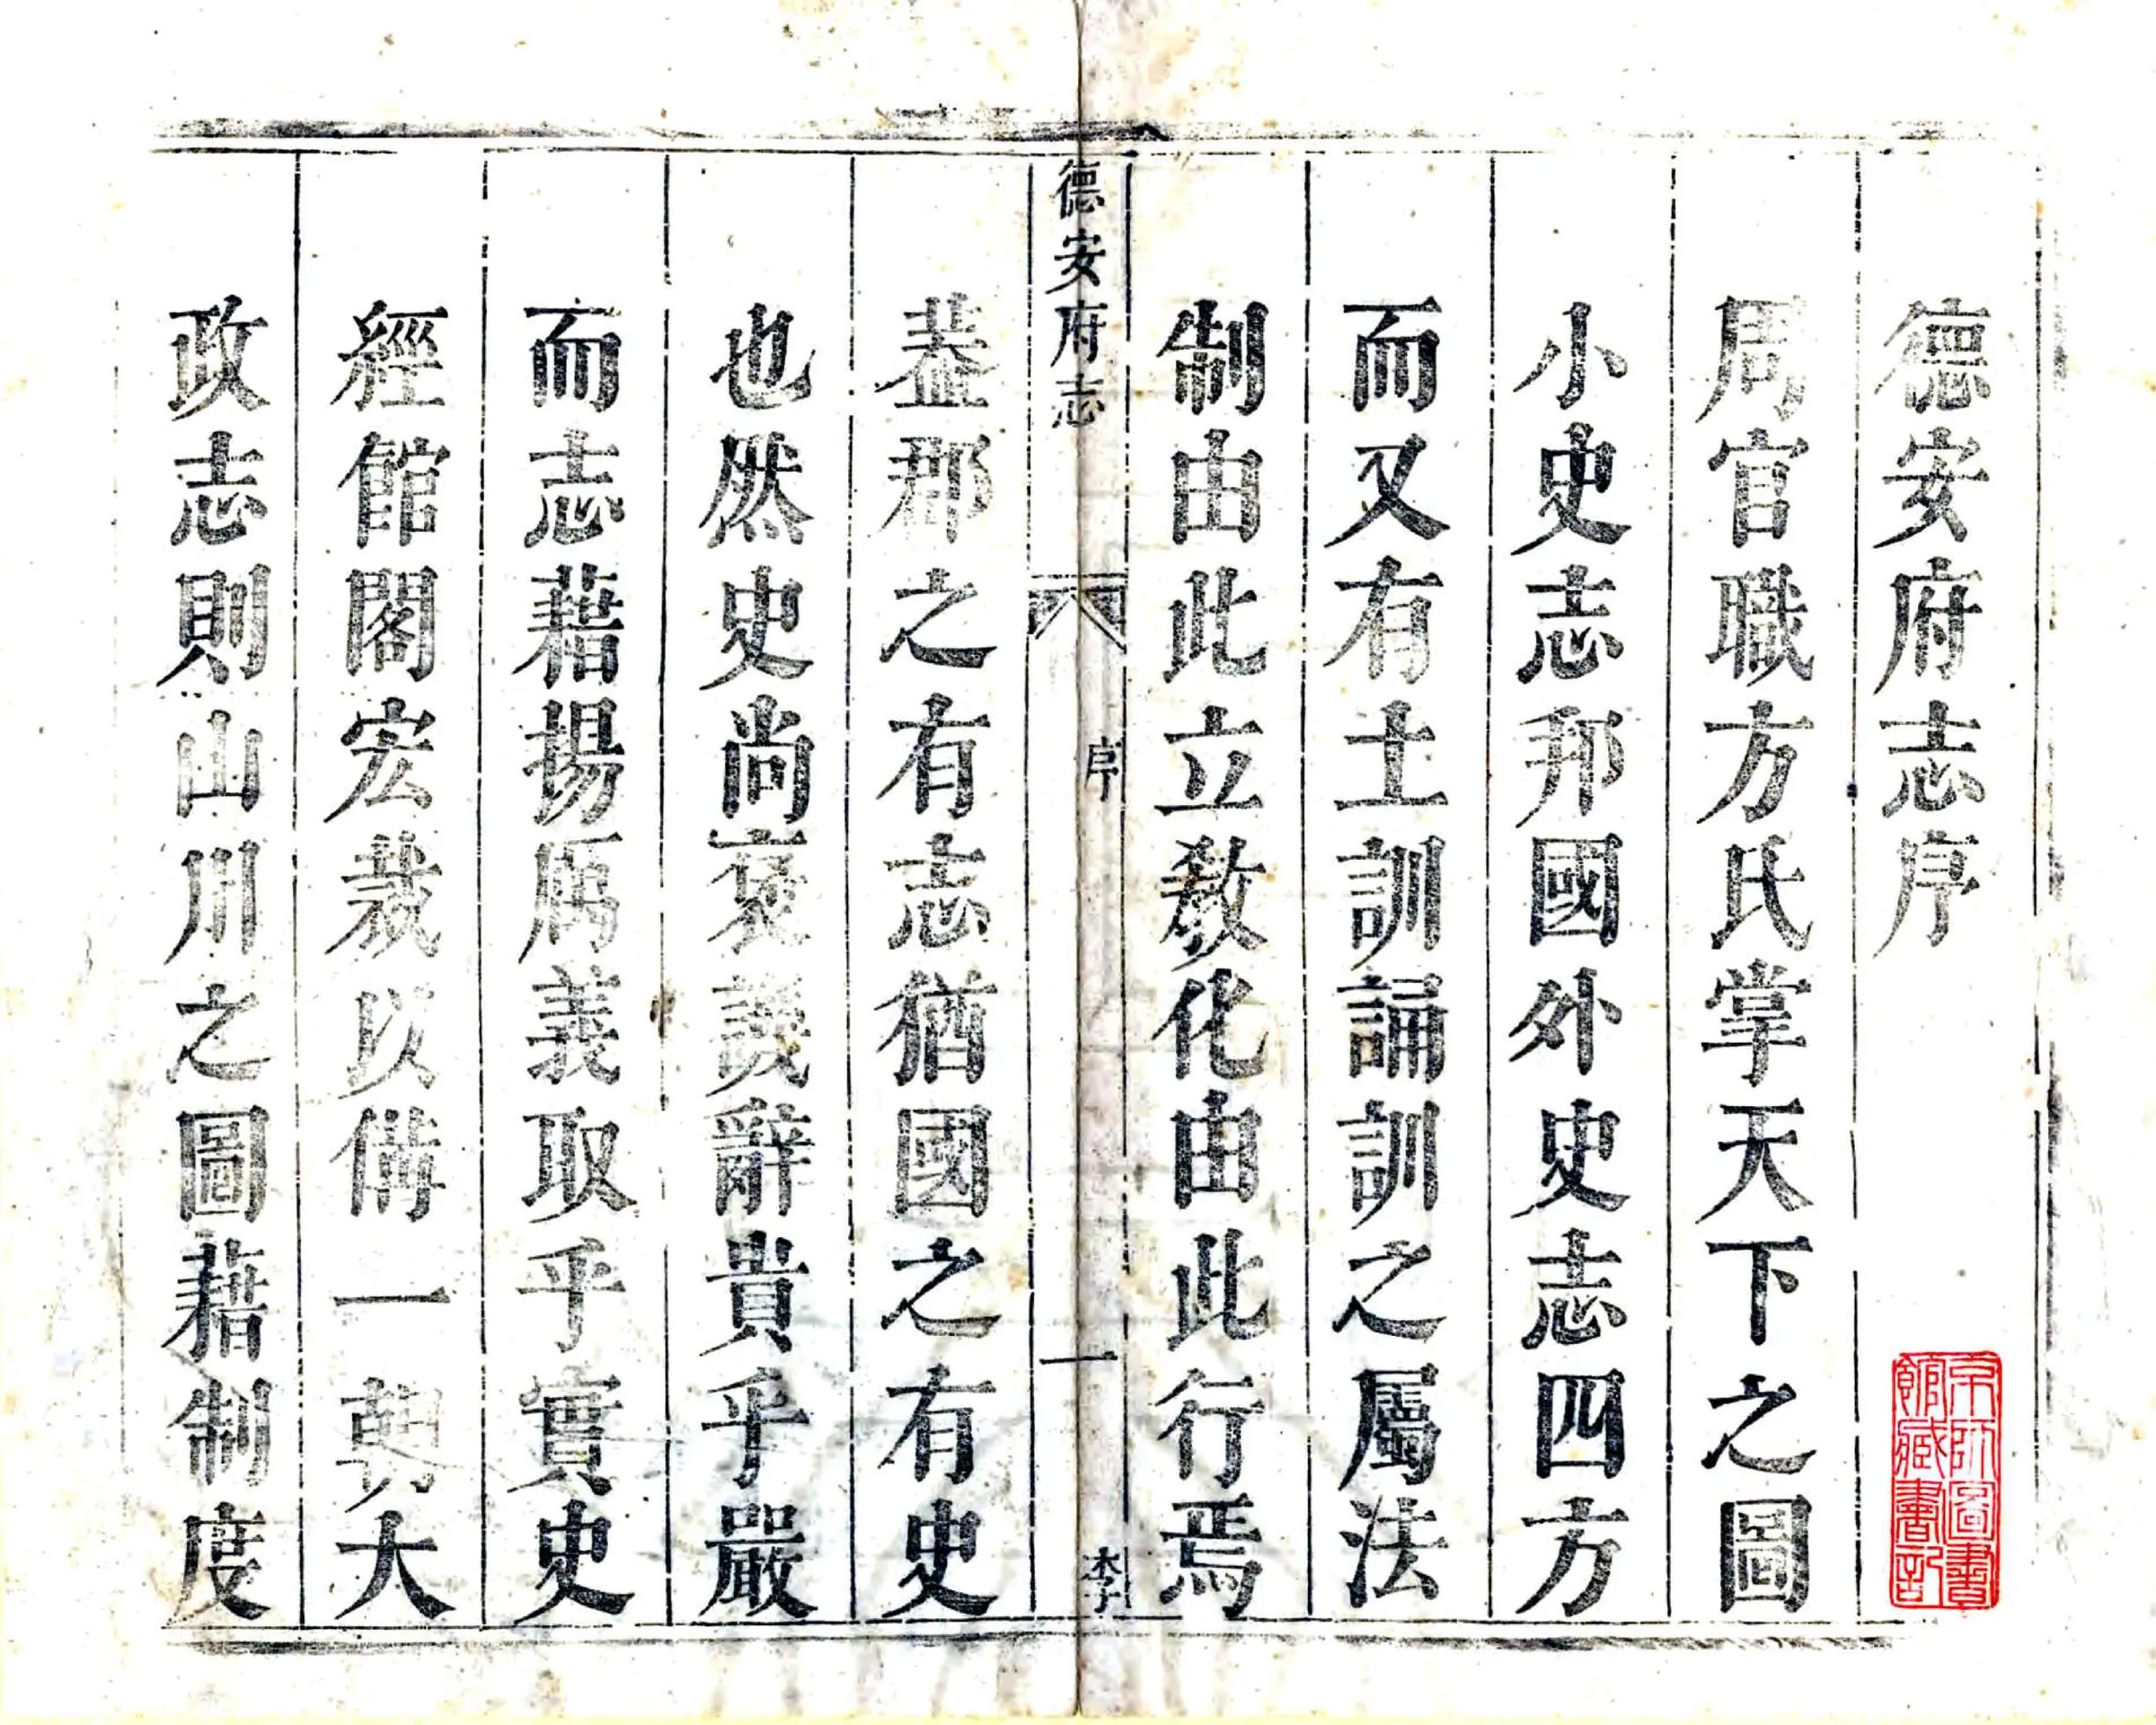 德安府志序
周官職方氏掌天下之圖
小史志邦國外史志四方
而又有土訓誦訓之屬法
制由此立教化由此行焉
德安府志
序
一
李
葢郡之有志猶國之有史
也然史尚褒譏辭貴乎嚴
而志藉揚厲義取乎實史
經館閣宏裁以備一朝大
政志則山川之圖藉制度
京師圖書
館藏書記